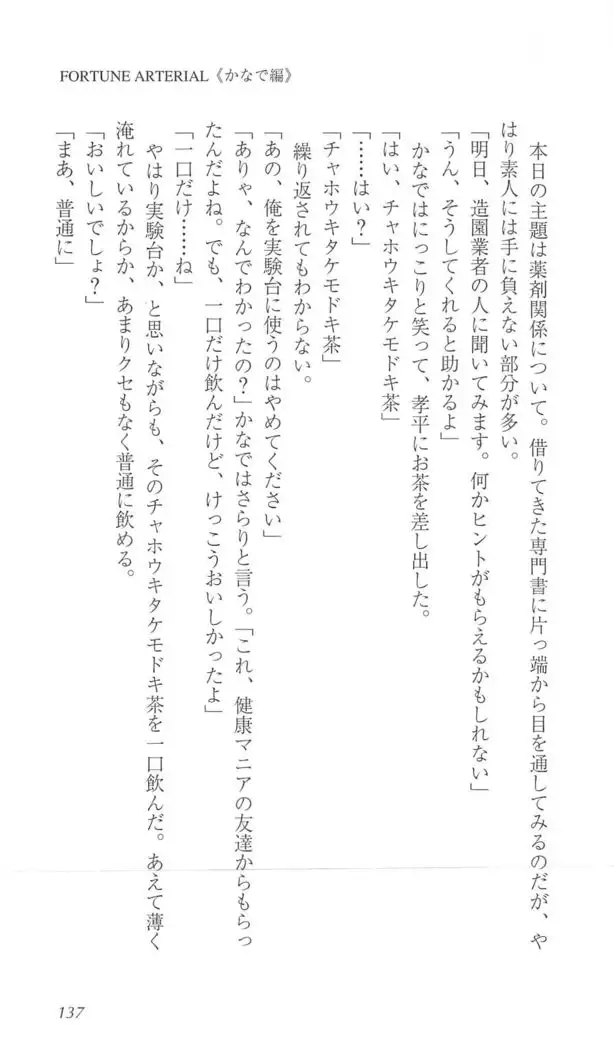 FORTUNE ARTERIAL《かなで編》
　本日の主題は薬剤関係について。借りてきた専門書に片っ端から目を通してみるのだが、や
はり素人には手に負えない部分が多い。
「明日、造園業者の人に聞いてみます。何かヒントがもらえるかもしれない」
「うん、そうしてくれると助かるよ」
　かなではにっこりと笑って、孝平にお茶を差し出した。
「はい、チャホウキタケモドキ茶」
「……はい？」
「チャホウキタケモドキ茶」
　繰り返されてもわからない。
「あの、俺を実験台に使うのはやめてください」
「ありゃ、なんでわかったの？」かなではさらりと言う。「これ、健康マニアの友達からもらっ
たんだよね。でも、一口だけ飲んだけど、けっこうおいしかったよ」
「一口だけ……ね」
　やはり実験台か、と思いながらも、そのチャホウキタケモドキ茶を一口飲んだ。あえて薄く
淹れているからか、あまりクセもなく普通に飲める。
「おいしいでしょ？」
「まあ、普通に」
137